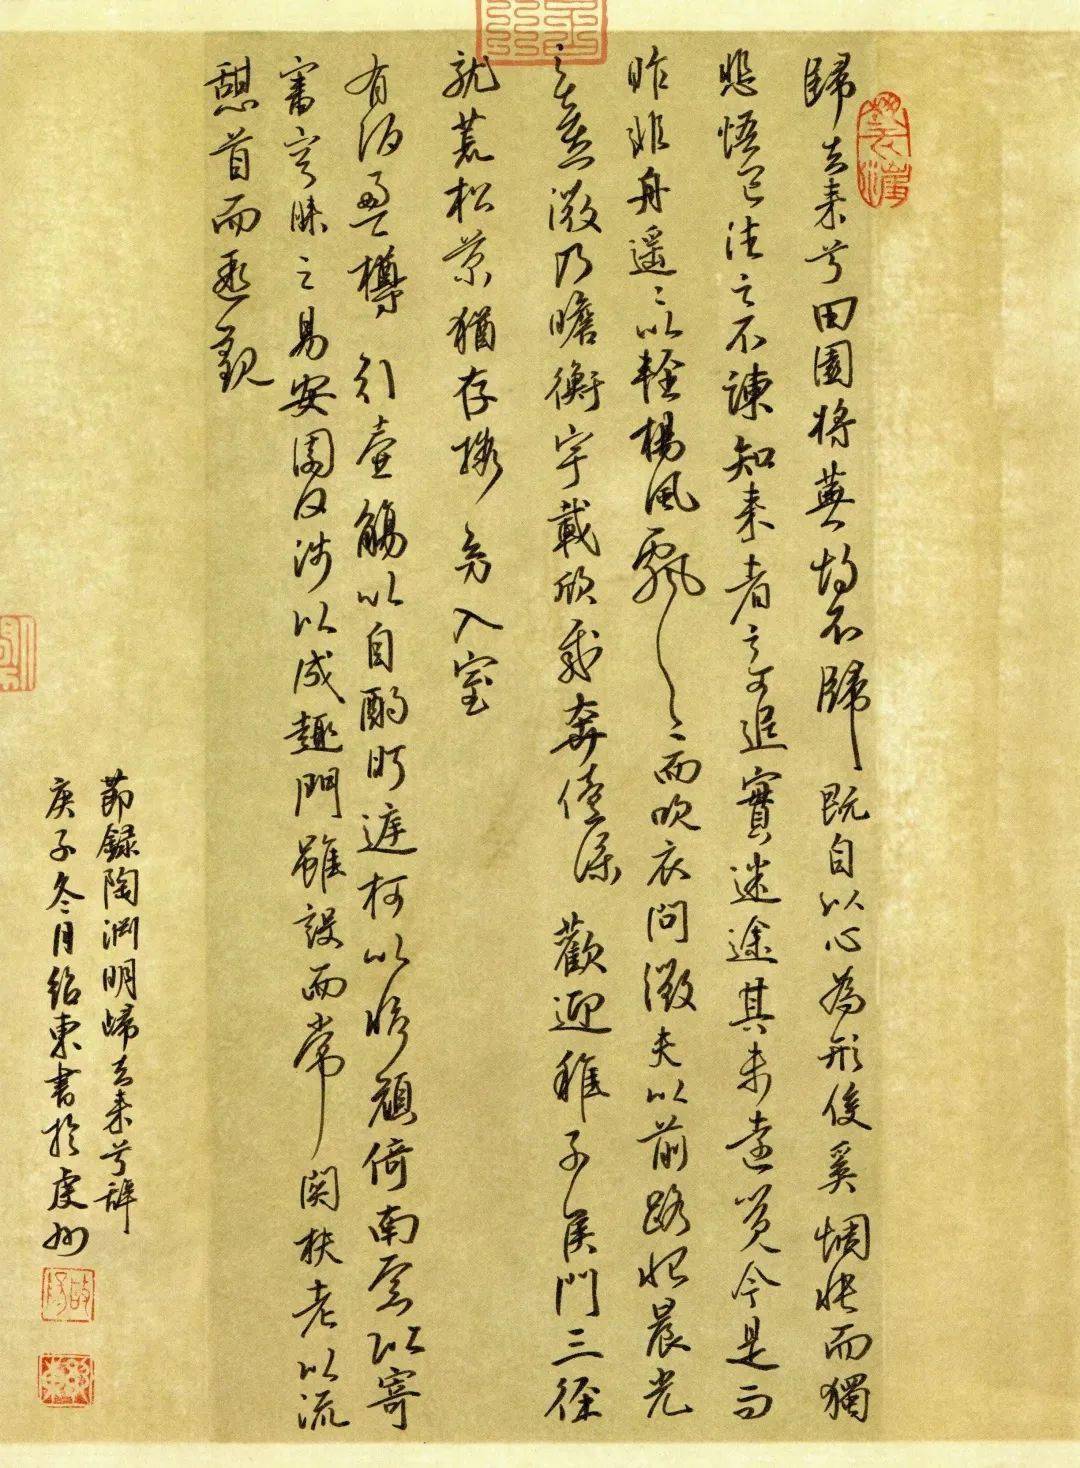 歸去来兮田園将蕪胡不歸既自以心為形役奚惆悵而獨
悲悟已往之不諫知来者之可追實迷途其未遠覺今是而
昨非舟遥〻以輕楊風飄〻而吹衣問徵夫以前路恨晨光
之熹微乃瞻衡宇載欣載奔僮僕歡迎稚子侯門三徑
就荒松菊猶存携幼入室
有酒盈樽引壶觴以自酌眄庭柯以怡顔倚南窓以寄
審容膝之易安園日涉以成趣門雖設而常関扶老以流
憩首而遐觀
節録陶渊明歸去来兮辞
庚子冬月绍東書於虔州